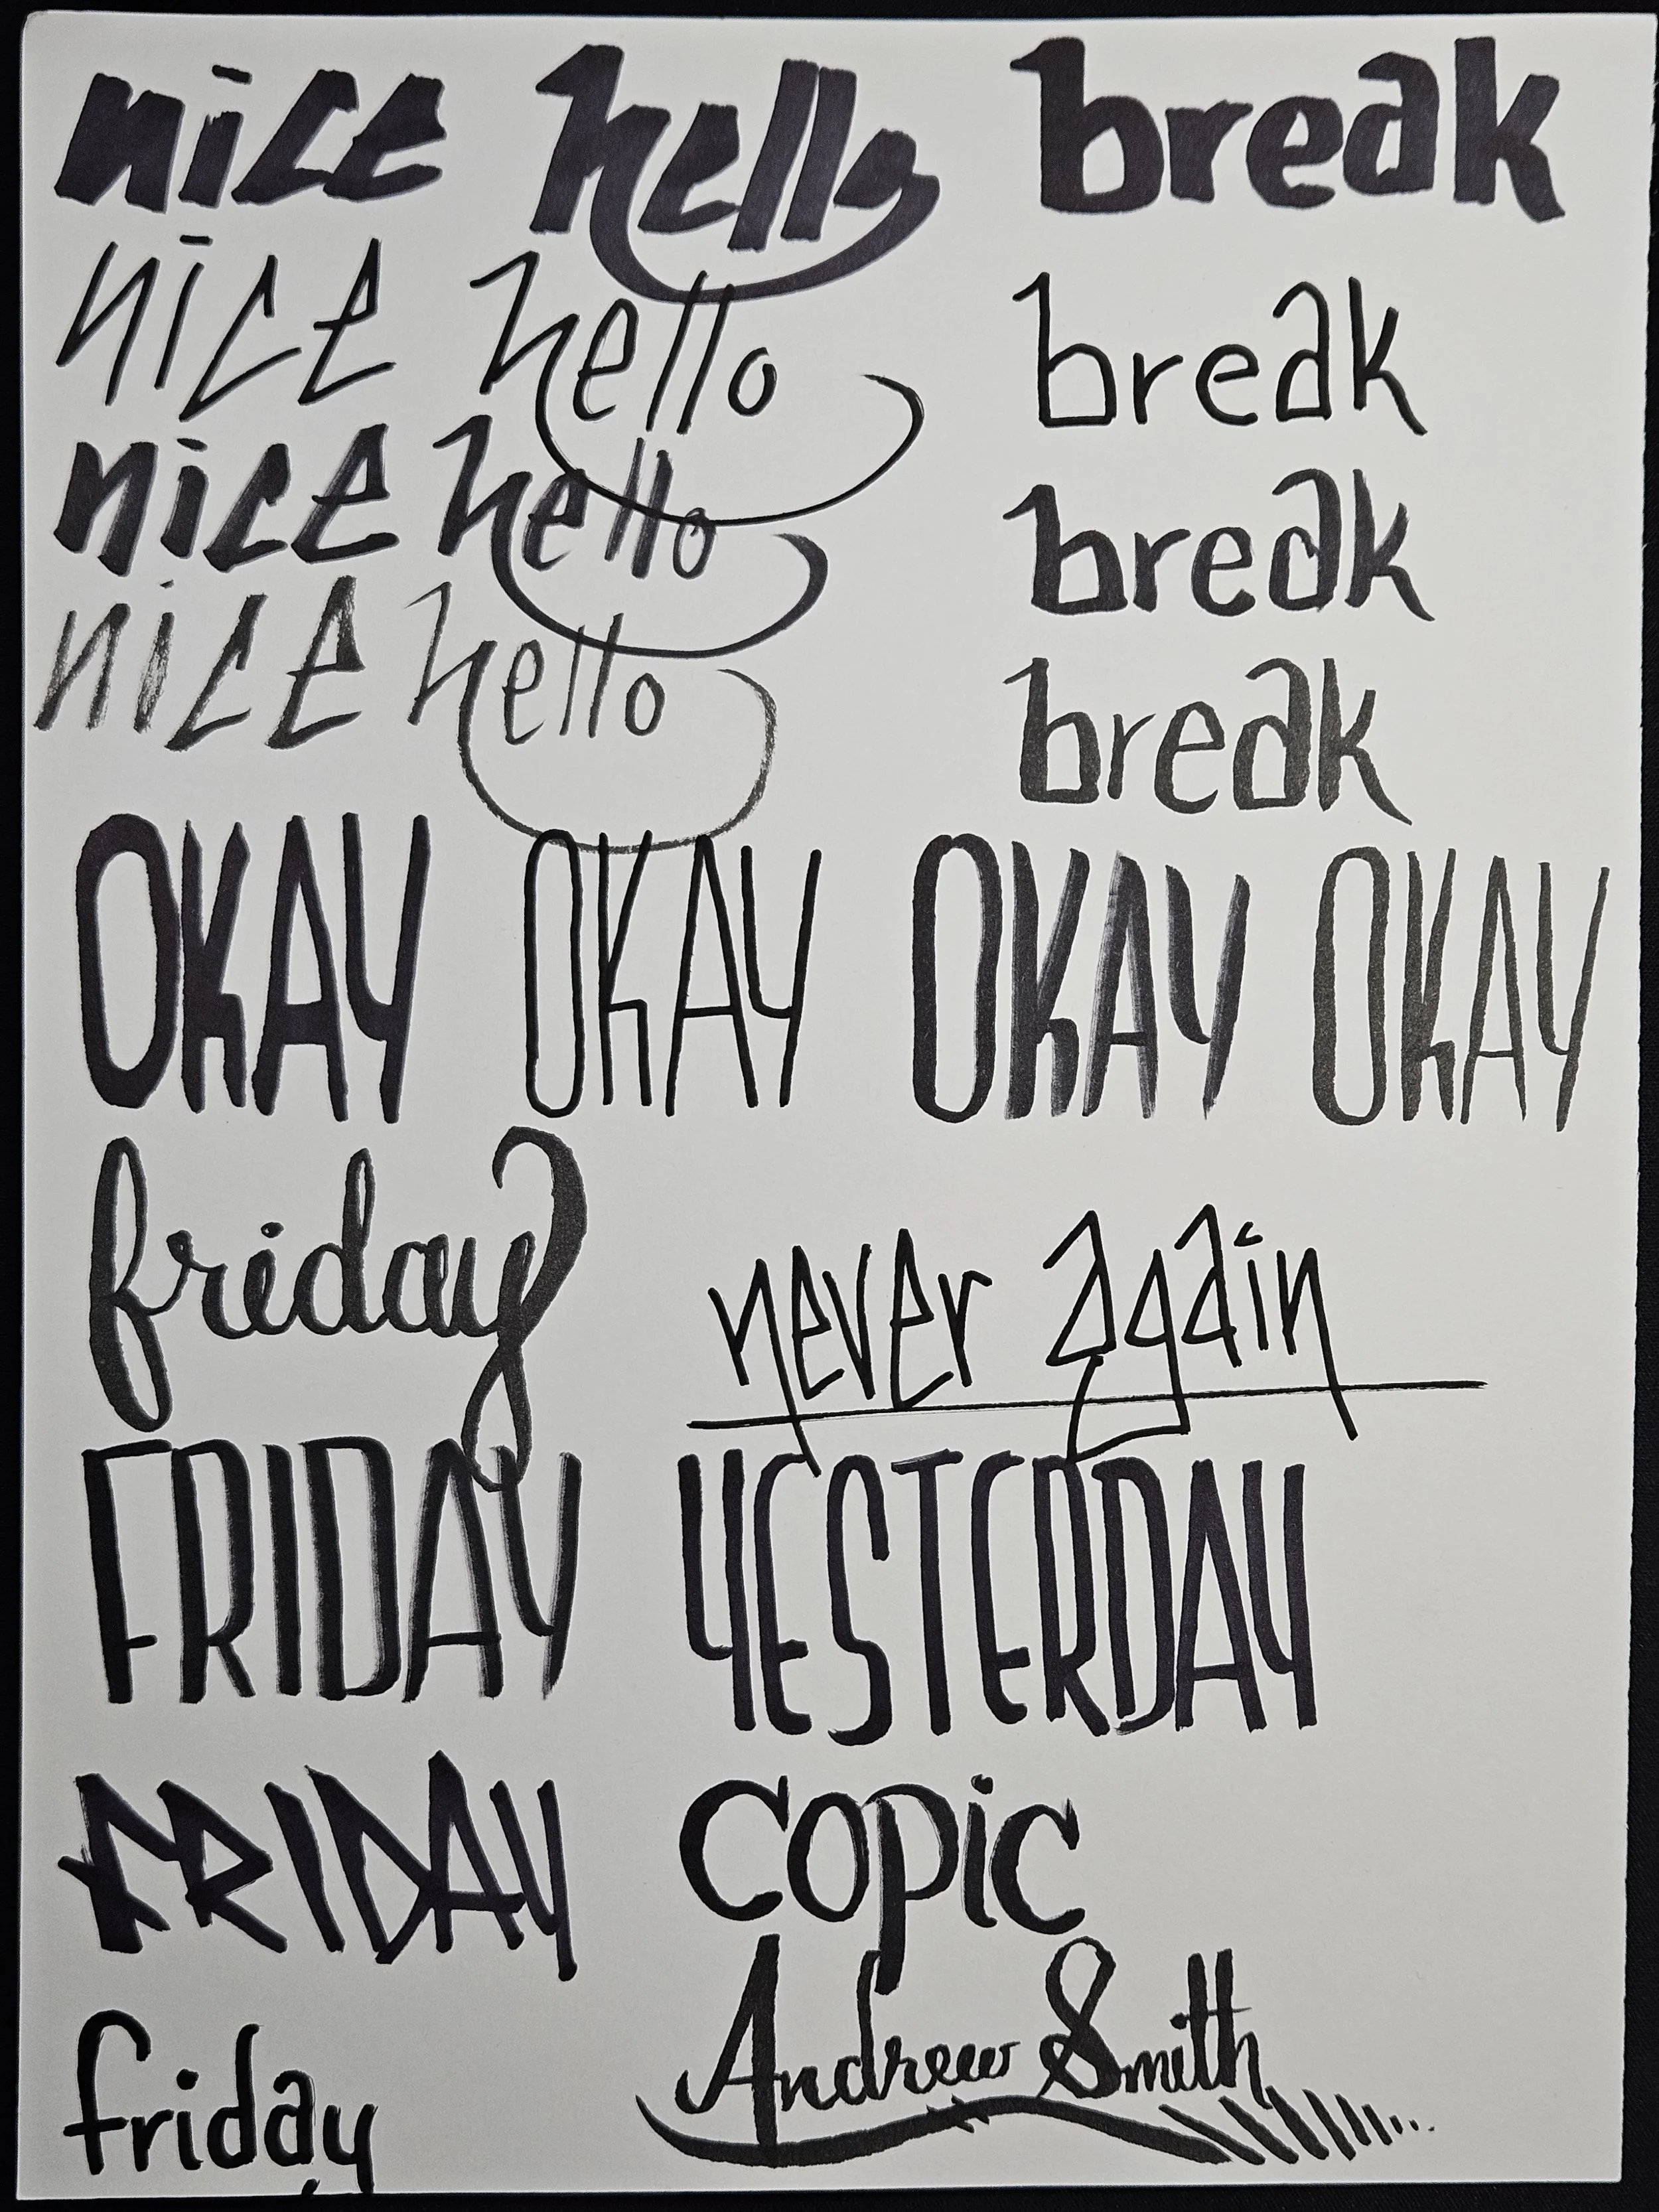 nice hello break
nice hello break
nice hello break
nice hello break
OKAY OKAY OKAY OKAY
friday never again
FRIDAY YESTERDAY
FRIDAY copic
friday Andrew Smith